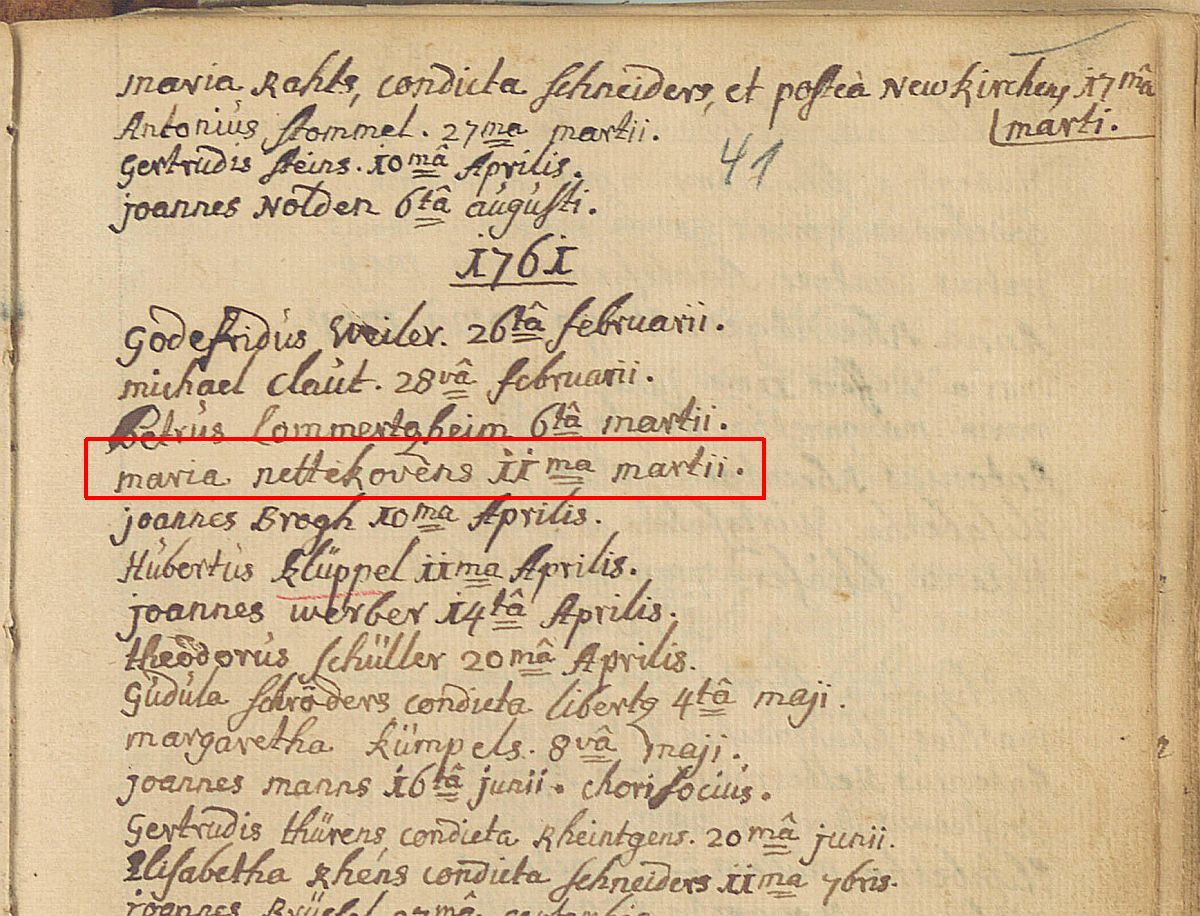 maria Rahts, condicta Schneiders, et posteà Newkirchen, 17mâ
marti.
Antonius Stommel. 27ma martii.
Gertrudis Steins. 10mâ Aprilis.
41
joannes Nolden 6tâ augusti.
1761
Godefridus Weiler. 26tâ februarii.
michael Claut. 28vâ februarii.
Petrus Lommertzheim 6tâ martii.
maria nettekovens 11ma martii.
joannes Brogh 10ma Aprilis.
Hubertus Klüppel 11ma Aprilis.
joannes werber 14tâ Aprilis.
theodorus Schüller 20mâ Aprilis.
Gudula Schröders condicta libertz 4tâ maji.
margaretha Kümpels. 8vâ maji.
joannes manns 16tâ junii. chori socius.
Gertrudis thürens condicta Rheintgens. 20mâ junii.
Elisabetha Rhens condicta Schneiders 11ma 7bris.
joannes